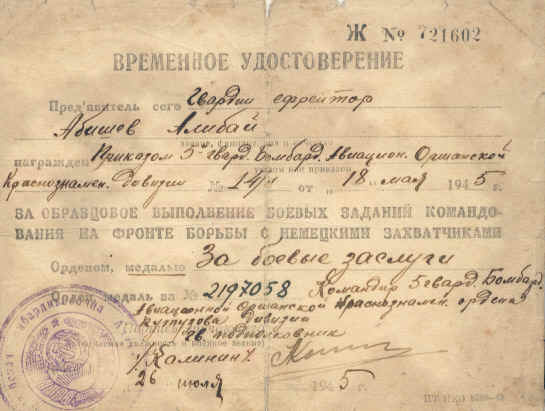 Ж № 721602
ВРЕМЕННОЕ УДОСТОВЕРЕНИЕ
Пред'явитель сего Гвардии ефрейтор
Абишев Алибай
награжден Приказом 5-гвард. Бомбард. Авиацион. Оршанской
Краснознамен. Дивизии № 14/н от "18" мая 1945 г.
ЗА ОБРАЗЦОВОЕ ВЫПОЛНЕНИЕ БОЕВЫХ ЗАДАНИЙ КОМАНДО-
ВАНИЯ НА ФРОНТЕ БОРЬБЫ С НЕМЕЦКИМИ ЗАХВАТЧИКАМИ
Орденом, медалью За боевые заслуги
медаль за № 2197058 Командир 5 гвард. Бомбард.
Авиационной Оршанской Краснознамен. ордена
Кутузова дивизии
гв подполковник
/Калинин/
26 июля 1945 г.